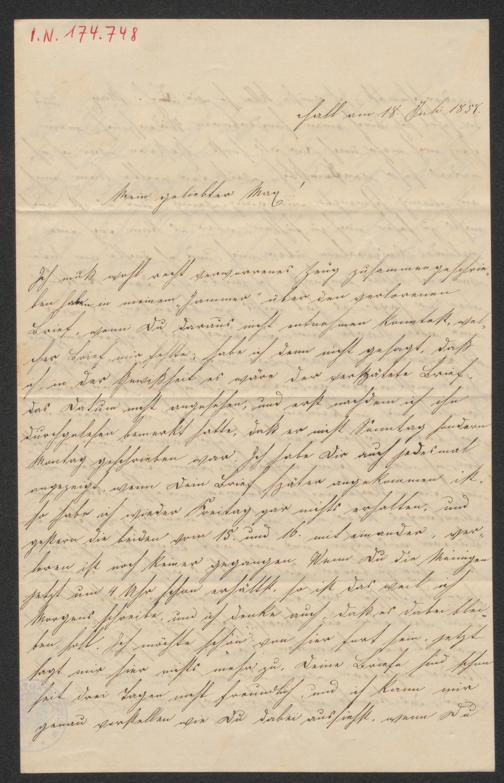 I.N. 174.748
Hall am 18. Juli 1857.
Mein geliebter Max!
Ich muß wohl recht verworrenes Zeug zusammengeschrie-
ben haben in meinem Jammer über den verlorenen
Brief, wenn Du daraus nicht entnehmen konntest, wel-
cher Brief mir fehlte; habe ich denn nicht gesagt, daß
ich in der Gewißheit es wäre der verspätete Brief,
das Datum nicht angesehen, und erst nachdem ich ihn
durchgelesen bemerkt hatte, daß er nicht Sonntag sondern
Montag geschrieben war. Ich habe Dir auch jedesmal
angezeigt, wenn Dein Brief später angekommen ist.
so habe ich wieder Freitag gar nichts erhalten, und
gestern die beiden vom 15. und 16. mit einander, ver-
loren ist noch keiner gegangen. Wenn Du die Meinigen
jetzt um 4 Uhr schon erhältst, so ist das weil ich
Morgens schreibe, und ich denke auch, daß es dabei blei-
ben soll. Ich möchte schon von hier fort sein, jetzt
sagt mir hier nichts mehr zu. Deine Briefe sind schon
seit drei Tagen nicht freundlich, und ich kann mir
genau vorstellen wie Du dabei aussiehst, wenn Du